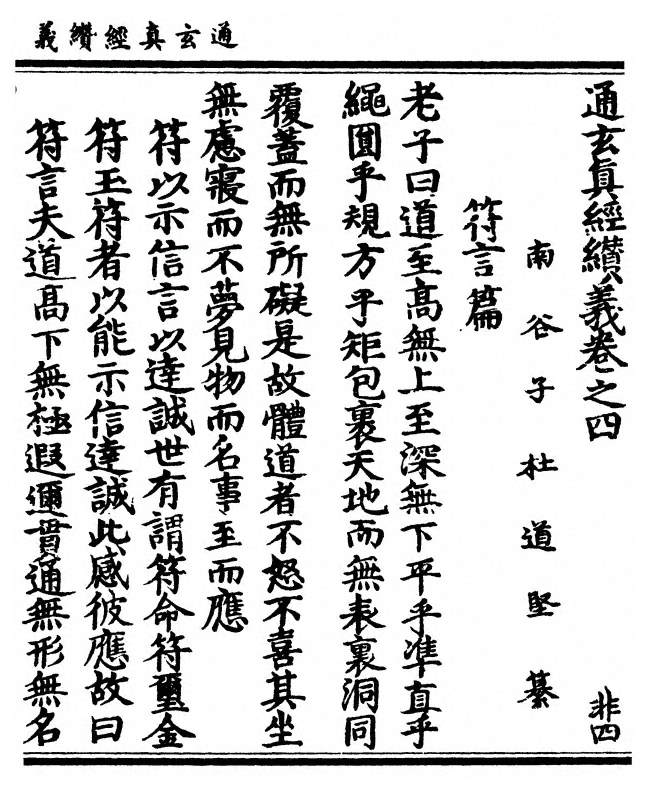 通玄真經纉義
通玄真經纉義卷之四
非四
南谷子杜道堅纂
符言篇
老子曰道至高無上至深無下平乎準直乎
繩圓乎規方乎矩包裹天地而無表裏洞同
覆蓋而無所礙是故體道者不怒不喜其坐
無慮寢而不夢見物而名事至而應
符以示信言以達誠世有謂符命符璽金
符玉符者以能示信達誠此感彼應故曰
符言夫道高下無極遐邇貫通無形無名